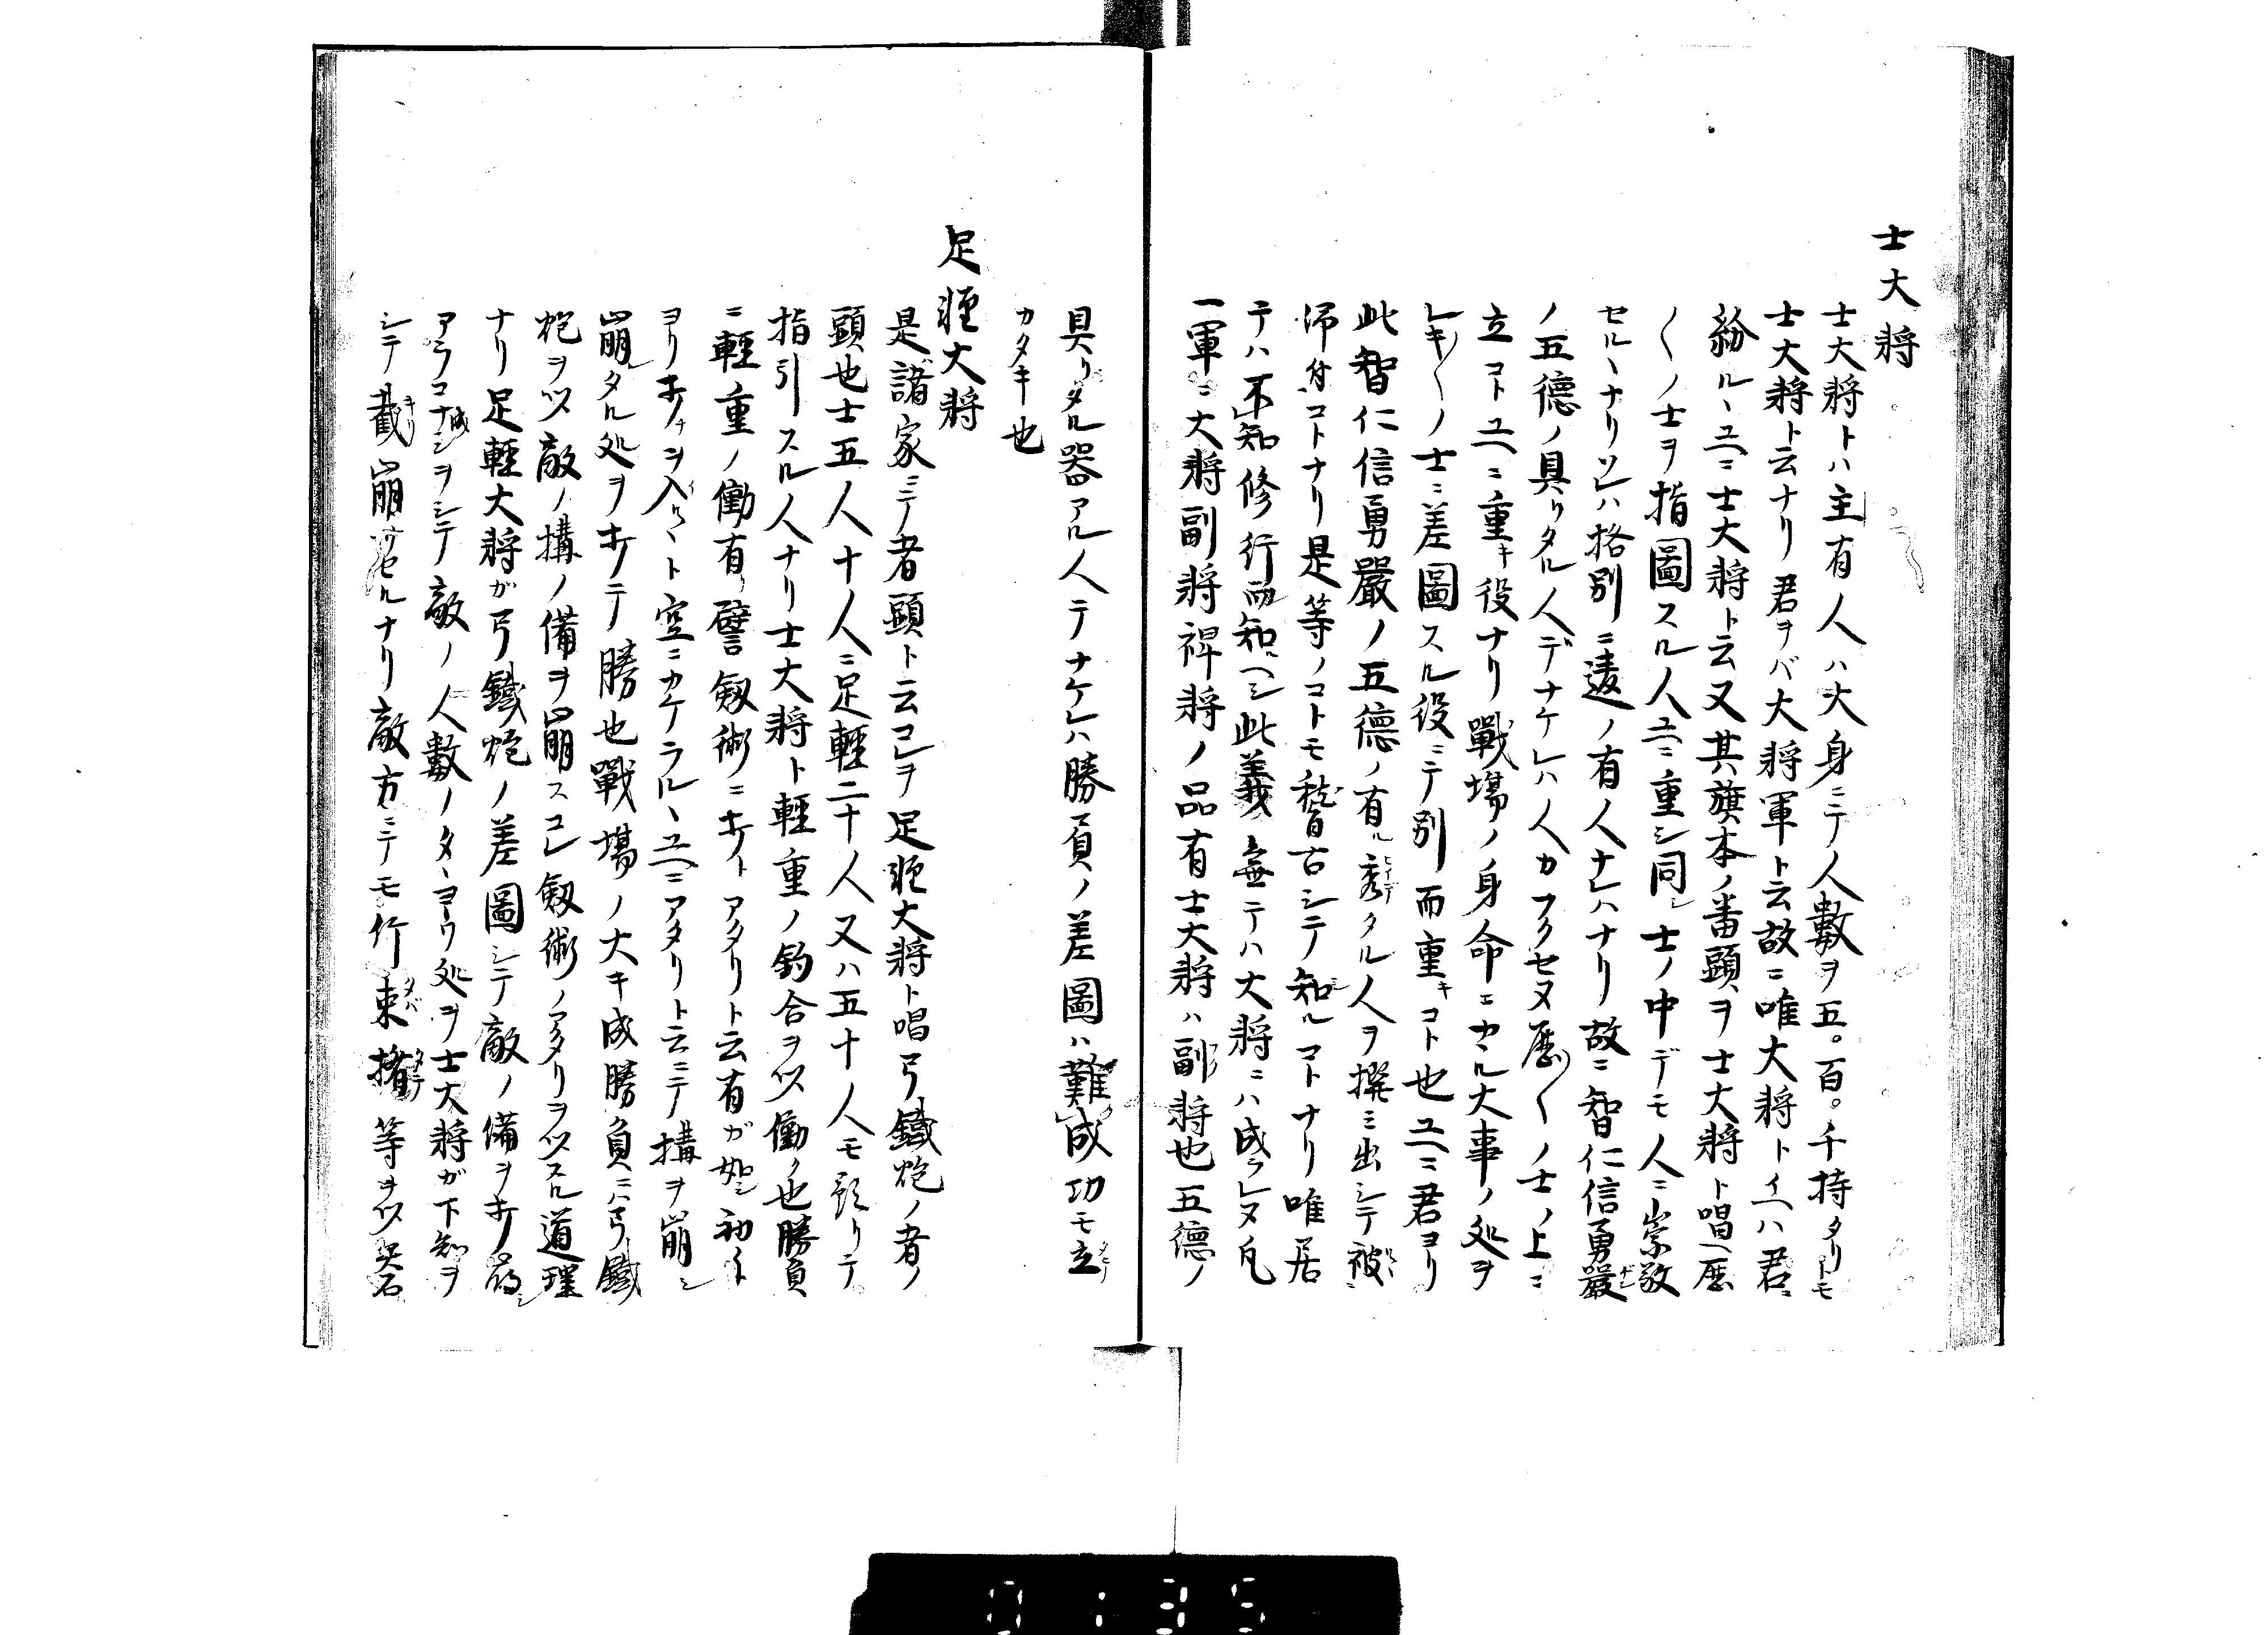 士大将
士大将トハ主有人ハ大身ニテ人數ヲ五百千持タリトモ
士大将ト云ナリ君ヲバ大将軍ト云故ニ唯大将トイヘハ君ニ
紛ルヽユヘニ士大将ト云又其旗本ノ番頭ヲ士大将ト唱ヘ歴
〱ノ士ヲ指圖スル人ユヘニ重シ同シ士ノ中デモ人ニ崇敬
セルヽナリソレハ格別ニ違ノ有人ナレハナリ故ニ智仁信勇嚴
ノ五德ノ具リタル人デナケレハ人カフクセヌ歴〱ノ士ノ上ニ
立コトユヘニ重キ役ナリ戰塲ノ身命ニカヽル大事ノ処ヲ
レキ〱ノ士ニ差圖スル役ニテ別而重キコト也ユヘニ君ヨリ
此智仁信勇嚴ノ五德ノ有ル秀タル人ヲ撰ミ出シテ被
仰付コトナリ是等ノコトモ稽古シテ知ルコトナリ唯居
テハ不知修行而知ヘシ此義無テハ大将ニハ成ラレヌ凡
一軍ニ大将副将裨将ノ品有士大将ハ副将也五德ノ
具リタル器アル人テナケレハ勝負ノ差圖ハ難成功モ立
カタキ也
足軽大将
是諸家ニテ者頭ト云コレヲ足軽大将ト唱弓鐵炮ノ者ノ
頭也士五人十人ニ足輕二十人又ハ五十人モ預リテ
指引スル人ナリ士大将ト輕重ノ釣合ヲ以働ク也勝負
ニ輕重ノ働有譬言劔術ニキルトアタリト云有ガ如シ初ニ
ヨリキヲ入ルヽト空ニカケラルヽユヘニアタリト云ニテ搆ヲ崩シ
崩レタル処ヲキテ勝也戰塲ノ大キ成勝負ニハ弓鐵
炮ヲ以敵ノ搆ノ備ヲ崩スコレ劔術ノアタリヲ以スル道理
ナリ足輕大将ガ弓鐵炮ノ差圖シテ敵ノ備ヲ射崩シ
アラコナシヲシテ敵ノ人數ノタヽヨウ処ヲ士大将ガ下知ヲ
シテ截崩サセルナリ敵方ニテモ竹束楯等ヲ以矢石